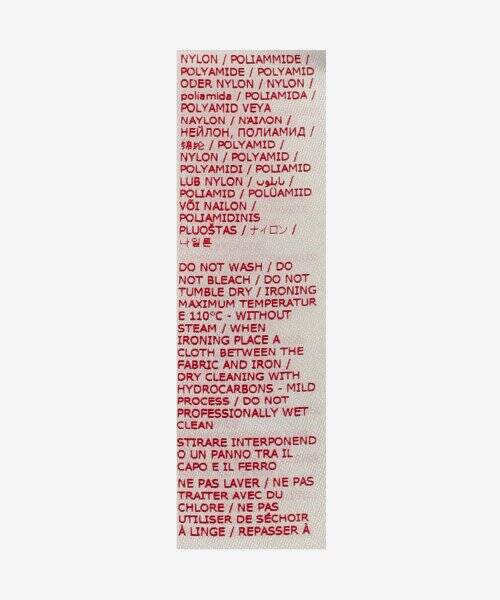 NYLON / POLIAMMIDE /
POLYAMIDE / POLYAMID
ODER NYLON / NYLON /
poliamida / POLIAMIDA /
POLYAMID VEYA
NAYLON / ΝΑΪΛΟΝ /
НЕЙЛОН, ПОЛИАМИД /
锦纶 / POLYAMID /
NYLON / POLYAMID /
POLYAMIDI / POLIAMID
LUB NYLON / نايلون /
POLIAMID / POLÜAMIID
VÕI NAILON /
POLIAMIDINIS
PLUOŠTAS / ナイロン /
나일론
DO NOT WASH / DO
NOT BLEACH / DO NOT
TUMBLE DRY / IRONING
MAXIMUM TEMPERATUR
E 110°C - WITHOUT
STEAM / WHEN
IRONING PLACE A
CLOTH BETWEEN THE
FABRIC AND IRON /
DRY CLEANING WITH
HYDROCARBONS - MILD
PROCESS / DO NOT
PROFESSIONALLY WET
CLEAN
STIRARE INTERPONEND
O UN PANNO TRA IL
CAPO E IL FERRO
NE PAS LAVER / NE PAS
TRAITER AVEC DU
CHLORE / NE PAS
UTILISER DE SÉCHOIR
À LINGE / REPASSER À